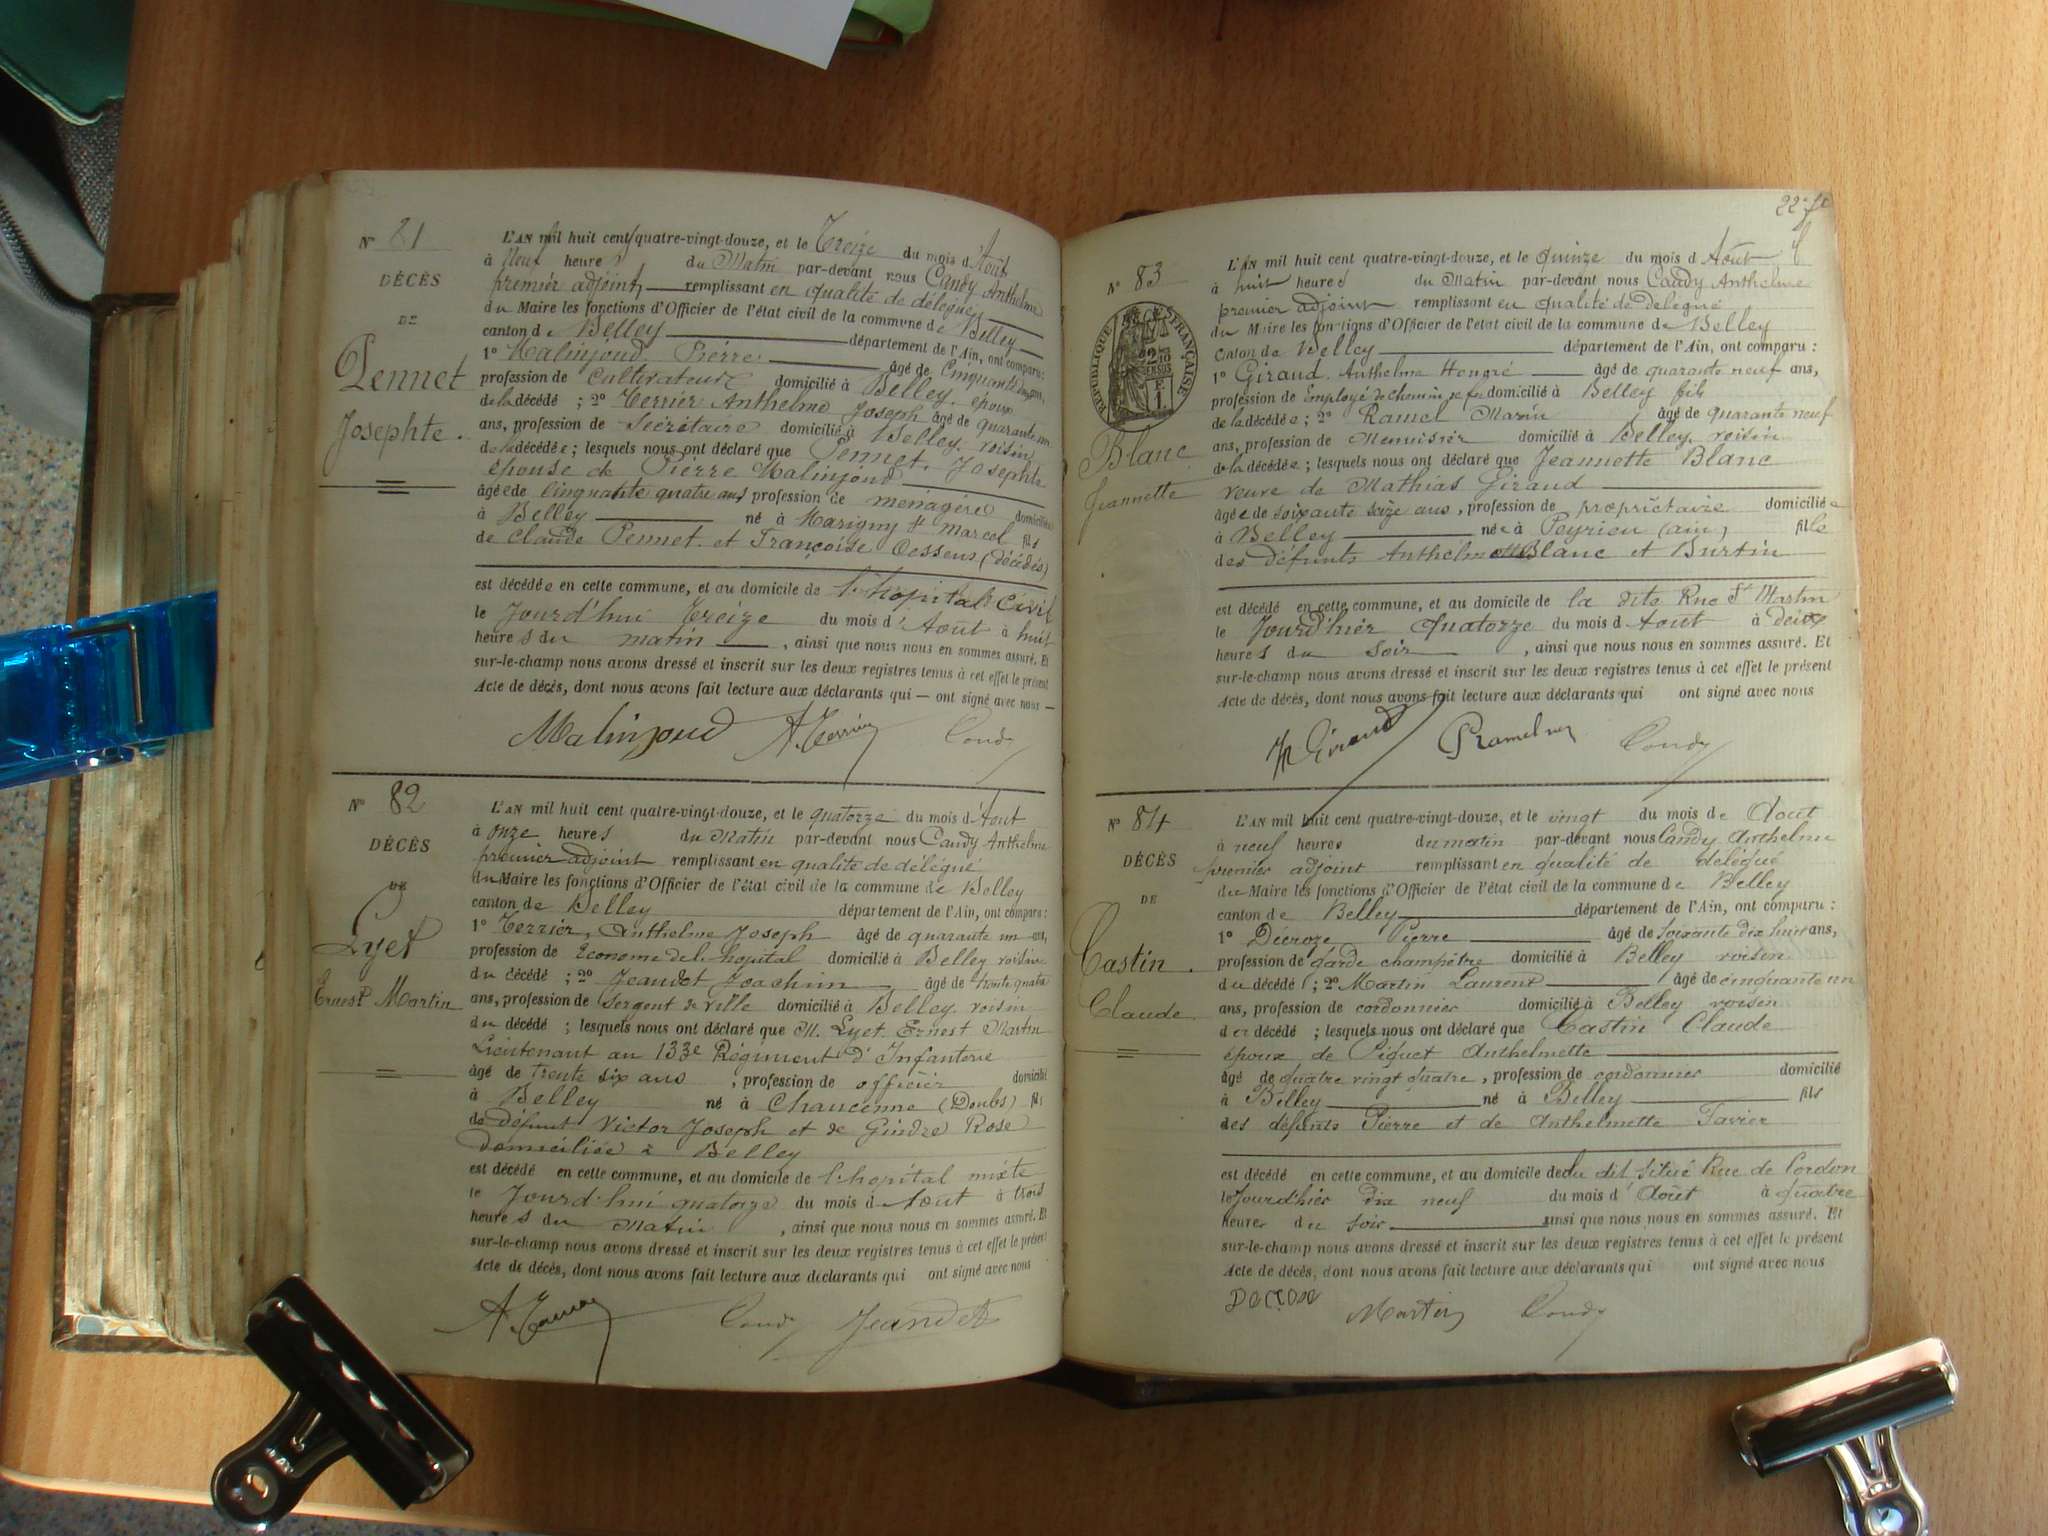 N° 81
DÉCÈS
DE
Pennet
Josephte.
L'AN mil huit cent quatre-vingt-douze, et le Treize du mois d'Août
à Neuf heures du Matin par-devant nous Candy Anthelme
premier adjoint remplissant en qualité de délégué
du Maire les fonctions d'Officier de l'état civil de la commune de Belley
canton de Belley département de l'Ain, ont comparu :
1° Malinjoud Pierre âgé de Cinquante ans,
profession de Cultivateur domicilié à Belley, époux
de la décédé ; 2° Terrier Anthelme Joseph âgé de quarante un
ans, profession de Secrétaire domicilié à Belley, voisin
de la décédée ; lesquels nous ont déclaré que Pennet, Josephte
épouse de Pierre Malinjoud
âgée de Cinquante quatre ans, profession de ménagère domiciliée
à Belley né à Marigny St Marcel fils
de Claude Pennet et Françoise Dessens (décédés)
est décédée en cette commune, et au domicile de l'hopital Civil
le Jourd'hui Treize du mois d'Août à huit
heures du matin, ainsi que nous nous en sommes assuré. Et
sur-le-champ nous avons dressé et inscrit sur les deux registres tenus à cet effet le présent
Acte de décès, dont nous avons fait lecture aux déclarants qui — ont signé avec nous —
Malinjoud A. Terrier Candy
N° 82
DÉCÈS
DE
Lyet
Ernest Martin
L'AN mil huit cent quatre-vingt-douze, et le quatorze du mois d'Aout
à onze heures du Matin par-devant nous Candy Anthelme
premier adjoint remplissant en qualité de délégué
du Maire les fonctions d'Officier de l'état civil de la commune de Belley
canton de Belley département de l'Ain, ont comparu :
1° Terrier, Anthelme Joseph âgé de quarante un ans,
profession de Econome de l'hopital domicilié à Belley voisin
du décédé ; 2° Jeandot Joachim âgé de trente quatre
ans, profession de Sergent de ville domicilié à Belley, voisin
du décédé ; lesquels nous ont déclaré que M. Lyet Ernest Martin
Lieutenant au 133e Régiment d'Infanterie
âgé de trente six ans, profession de officier domicilié
à Belley né à Chaucenne (Doubs) fils
de défunt Victor Joseph et de Gindre Rose
domiciliée à Belley
est décédé en cette commune, et au domicile de l'hopital mixte
le Jourd'hui quatorze du mois d'Aout à trois
heures du Matin, ainsi que nous nous en sommes assuré. Et
sur-le-champ nous avons dressé et inscrit sur les deux registres tenus à cet effet le présent
Acte de décès, dont nous avons fait lecture aux déclarants qui ont signé avec nous
Candy Jeandot
N° 83
RÉPUBLIQUE FRANÇAISE
Blanc
Jeannette
L'AN mil huit cent quatre-vingt-douze, et le Quinze du mois d'Aout
à huit heures du Matin par-devant nous Candy Anthelme
premier adjoint remplissant en qualité de délégué
du Maire les fonctions d'Officier de l'état civil de la commune de Belley
canton de Belley département de l'Ain, ont comparu :
1° Giraud Anthelme Honoré âgé de quarante neuf ans,
profession de Employé de chemin de fer domicilié à Belley fils
de la décédée ; 2° Ramel Marin âgé de quarante neuf
ans, profession de Menuisier domicilié à Belley, voisin
de la décédée ; lesquels nous ont déclaré que Jeannette Blanc
veuve de Mathias Giraud
âgée de soixante seize ans, profession de propriétaire domiciliée
à Belley née à Peyrieu (ain) fille
des défunts Anthelme Blanc et Burtin
est décédé en cette commune, et au domicile de la dite Rue St Martin
le Jourd'hier Quatorze du mois d'Aout à deux
heures du soir, ainsi que nous nous en sommes assuré. Et
sur-le-champ nous avons dressé et inscrit sur les deux registres tenus à cet effet le présent
Acte de décès, dont nous avons fait lecture aux déclarants qui ont signé avec nous
Giraud Ramel Candy
N° 84
DÉCÈS
DE
Castin.
Claude
L'AN mil huit cent quatre-vingt-douze, et le vingt du mois de Aout
à neuf heures du matin par-devant nous Candy Anthelme
premier adjoint remplissant en qualité de délégué
du Maire les fonctions d'Officier de l'état civil de la commune de Belley
canton de Belley département de l'Ain, ont comparu :
1° Décroze Pierre âgé de Soixante dix huit ans,
profession de garde champêtre domicilié à Belley voisin
du décédé ; 2° Martin Laurent âgé de cinquante un
ans, profession de cordonnier domicilié à Belley voisin
du décédé ; lesquels nous ont déclaré que Castin Claude
époux de Piquet Anthelmette
âgé de quatre vingt quatre, profession de cordonnier domicilié
à Belley né à Belley fils
des défunts Pierre et de Anthelmette Tavier
est décédé en cette commune, et au domicile de du dit situé Rue de Cordon
le Jourd'hier dix neuf du mois d'Août à quatre
heures du soir ainsi que nous nous en sommes assuré. Et
sur-le-champ nous avons dressé et inscrit sur les deux registres tenus à cet effet le présent
Acte de décès, dont nous avons fait lecture aux déclarants qui ont signé avec nous
Martin Candy